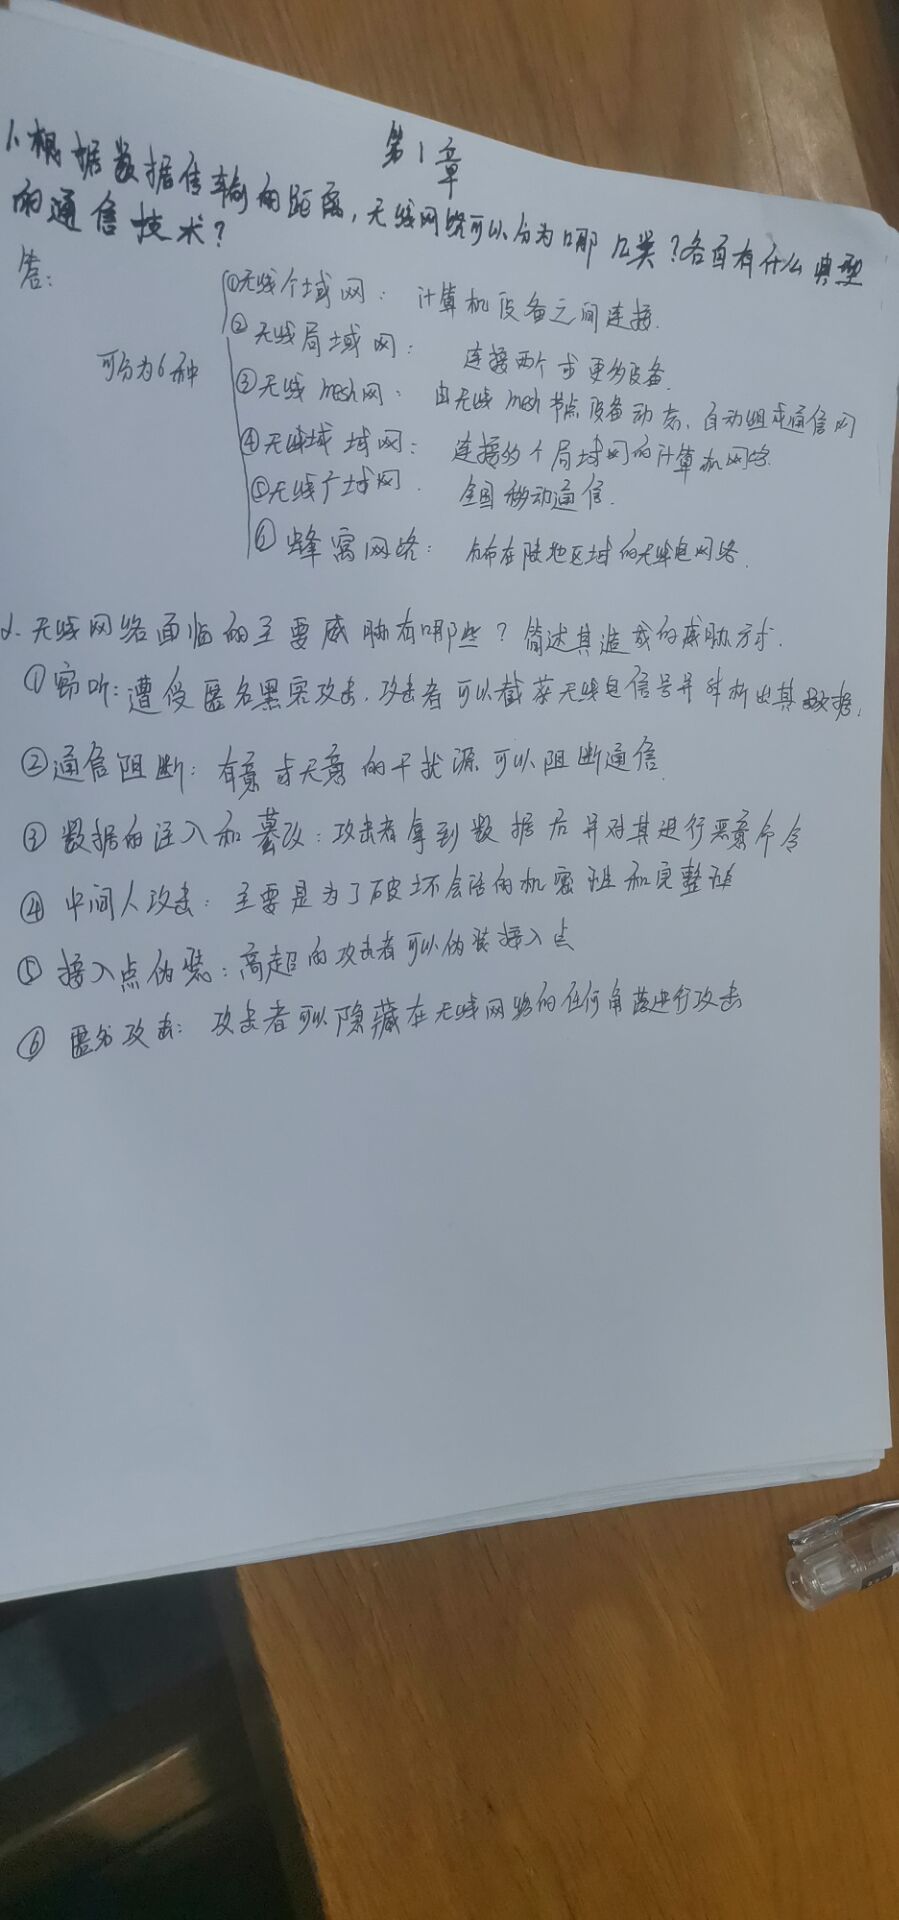 第1章
1.根据数据传输的距离,无线网络可以分为哪几类?各自有什么典型
的通信技术?
答:
可分为6种
①无线个域网: 计算机设备之间连接.
②无线局域网: 连接两个或更多设备.
③无线mesh网: 由无线mesh节点设备动态、自动组成通信网
④无线域域网: 连接的个局域网的计算机网络.
⑤无线广域网. 全国移动通信.
⑥蜂窝网络: 分布在陆地区域的无线电网络.
2.无线网络面临的主要威胁有哪些?简述其造成的威胁方式.
①窃听:遭受匿名黑客攻击.攻击者可以截获无线电信号并解析出其数据.
②通信阻断:有意或无意的干扰源可以阻断通信.
③数据的注入和篡改:攻击者拿到数据后并对其进行恶意命令
④中间人攻击:主要是为了破坏会话的机密性和完整性
⑤接入点伪装:高超的攻击者可以伪装接入点
⑥匿名攻击:攻击者可以隐藏在无线网络的任何角落进行攻击